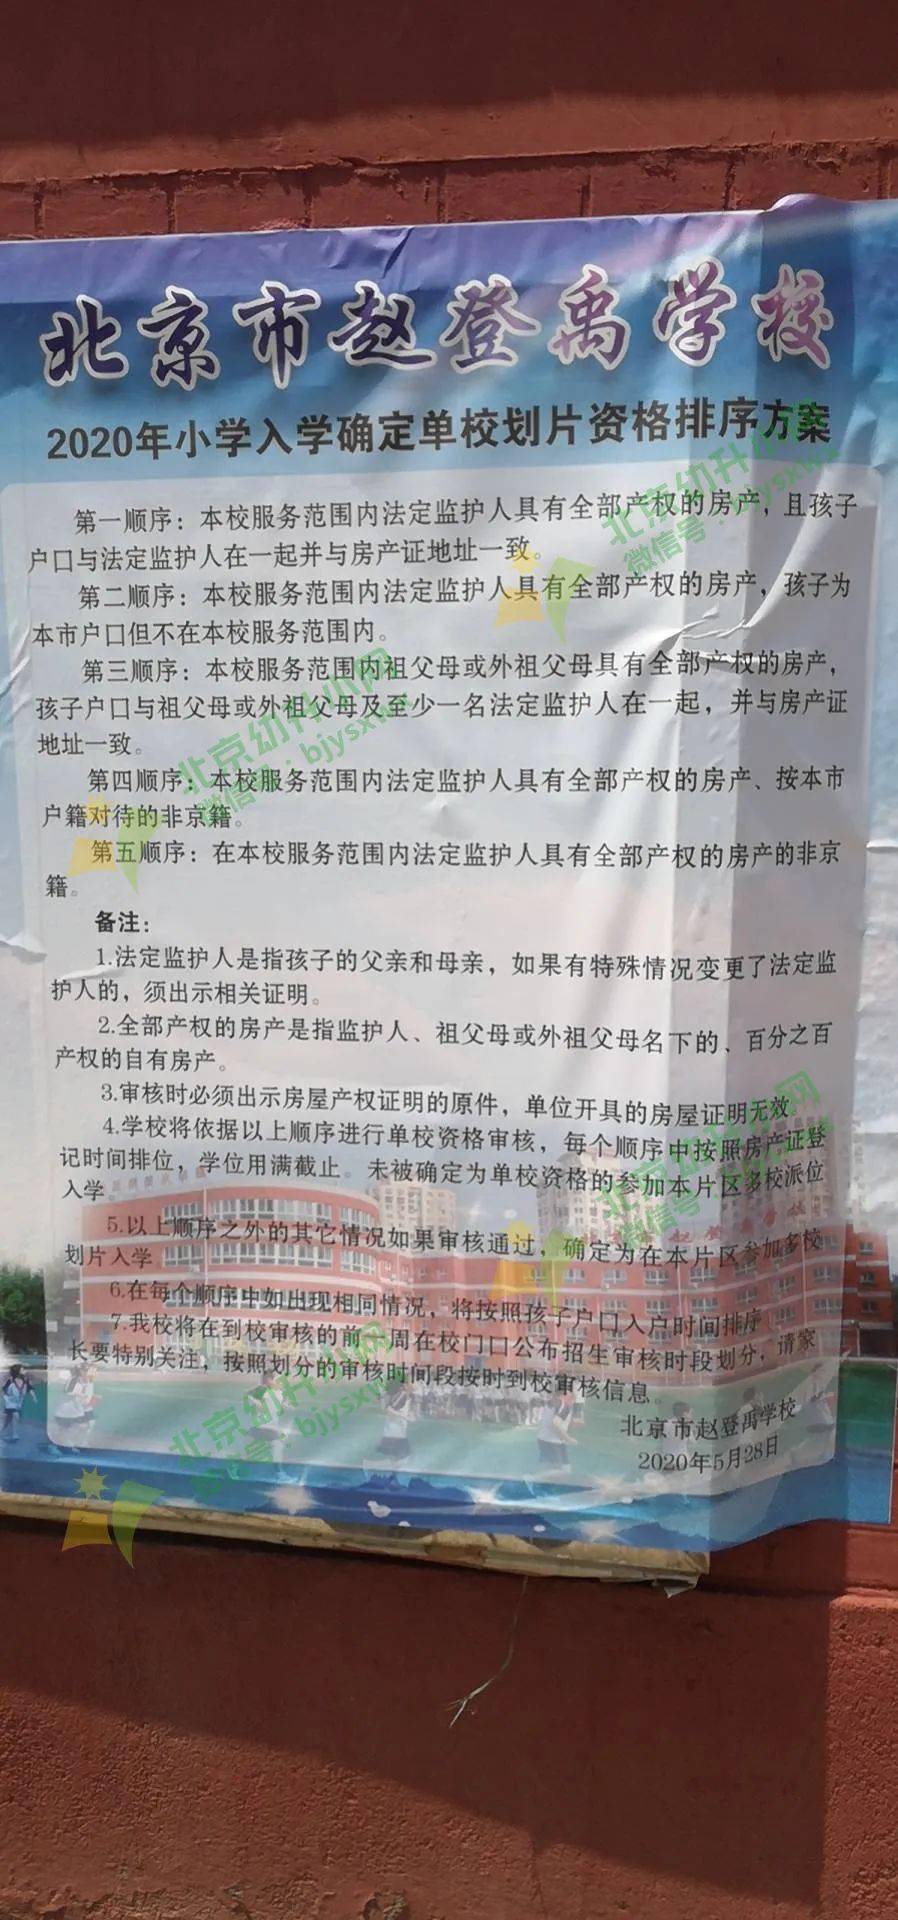 北京市赵登禹学校
2020年小学入学确定单校划片资格排序方案
第一顺序：本校服务范围内法定监护人具有全部产权的房产，且孩子
户口与法定监护人在一起并与房产证地址一致。
第二顺序：本校服务范围内法定监护人具有全部产权的房产，孩子为
本市户口但不在本校服务范围内。
第三顺序：本校服务范围内祖父母或外祖父母具有全部产权的房产，
孩子户口与祖父母或外祖父母及至少一名法定监护人在一起，并与房产证
地址一致。
第四顺序：本校服务范围内法定监护人具有全部产权的房产、按本市
户籍对待的非京籍。
第五顺序：在本校服务范围内法定监护人具有全部产权的房产的非京
籍。
备注：
1.法定监护人是指孩子的父亲和母亲，如果有特殊情况变更了法定监
护人的，须出示相关证明。
2.全部产权的房产是指监护人、祖父母或外祖父母名下的、百分之百
产权的自有房产。
3.审核时必须出示房屋产权证明的原件，单位开具的房屋证明无效
4.学校将依据以上顺序进行单校资格审核，每个顺序中按照房产证登
记时间排位，学位用满截止。未被确定为单校资格的参加本片区多校派位
入学。
5.以上顺序之外的其它情况如果审核通过，确定为在本片区参加多校
划片入学
6.在每个顺序中如出现相同情况，将按照孩子户口入户时间排序
7.我校将在到校审核的前一周在校门口公布招生审核时段划分，请家
长要特别关注，按照划分的审核时间段按时到校审核信息。
北京市赵登禹学校
2020年5月28日
北京幼升小网
微信号：bjysxwx
北京幼升小网
微信号：bjysxwx
北京幼升小网
北京幼升小网
微信号：bjysxwx